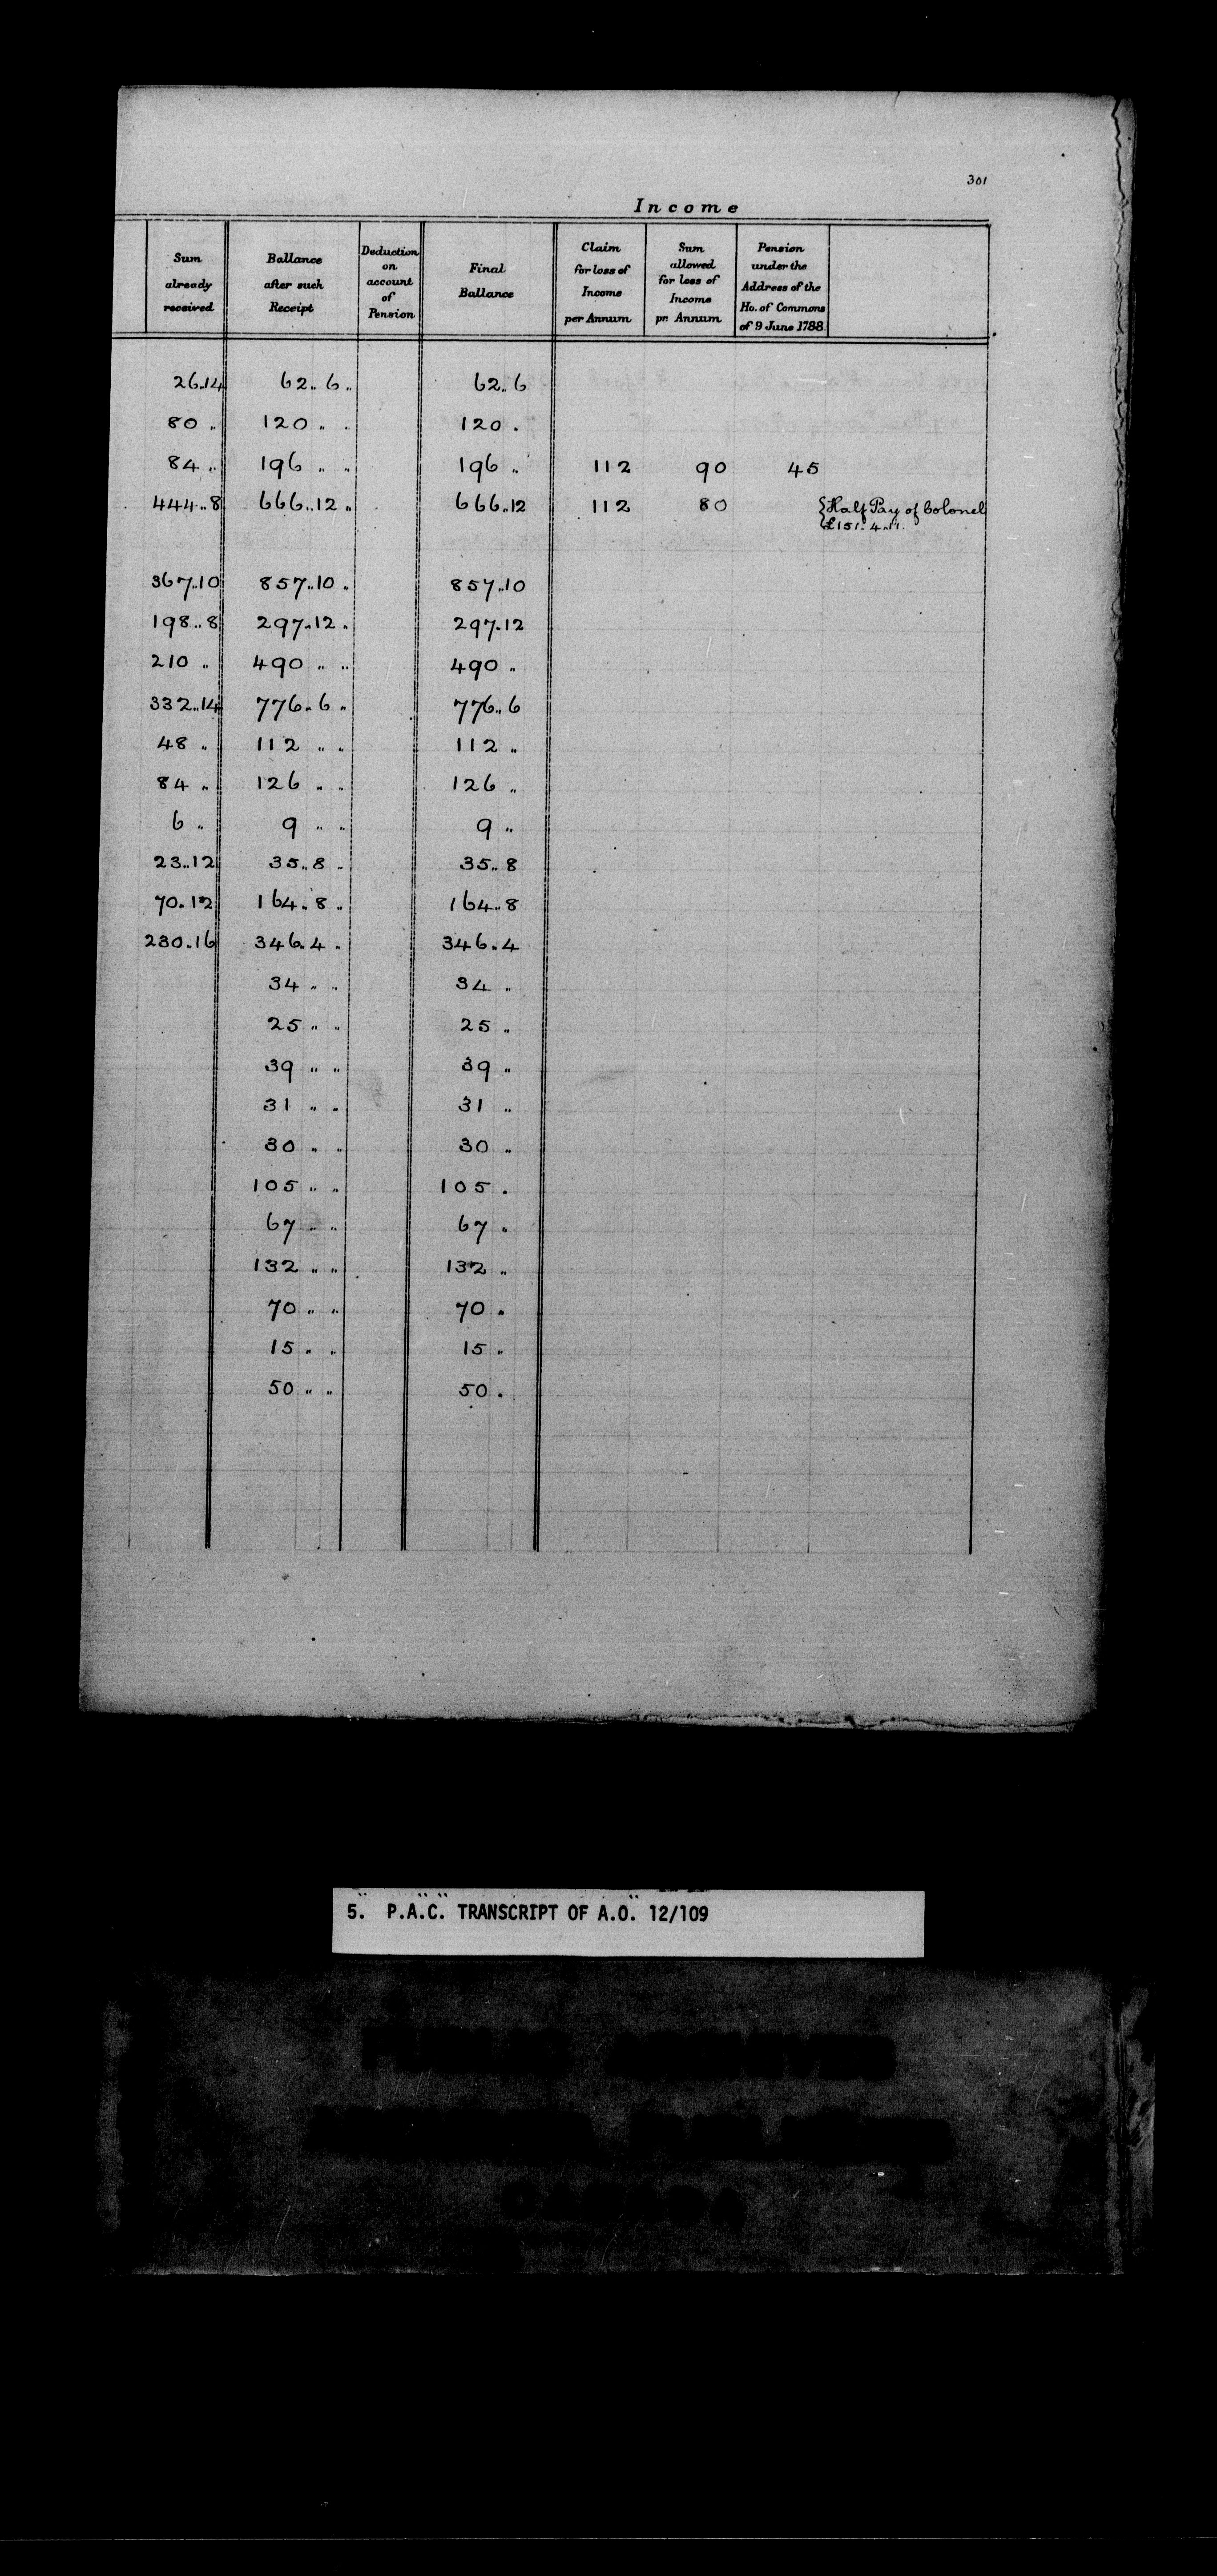 301
Income
Sum already received | Ballance after such Receipt | Deduction on account of Pension | Final Ballance | Claim for loss of Income per Annum | Sum allowed for loss of Income pr. Annum | Pension under the Address of the Ho. of Commons of 9 June 1788
26..14 62..6 „ 62..6
80 „ 120 „ „ 120 .
84 „ 196 „ „ 196 „ 112 90 45
444..8 666..12 „ 666..12 112 80 {Half Pay of Colonel
£151..4..11.
367..10 857..10 „ 857..10
198..8 297..12 „ 297..12
210 „ 490 „ „ 490 „
332..14 776..6 „ 776..6
48 „ 112 „ „ 112 „
84 „ 126 „ „ 126 „
6 „ 9 „ „ 9 „
23..12 35..8 „ 35..8
70..12 164..8 „ 164..8
230..16 346..4 „ 346..4
34 „ „ 34 „
25 „ „ 25 „
39 „ „ 39 „
31 „ „ 31 „
30 „ „ 30 „
105 „ „ 105 .
67 „ „ 67 „
132 „ „ 132 „
70 „ „ 70 „
15 „ „ 15 „
50 „ „ 50 .
5. P.A.C. TRANSCRIPT OF A.O. 12/109